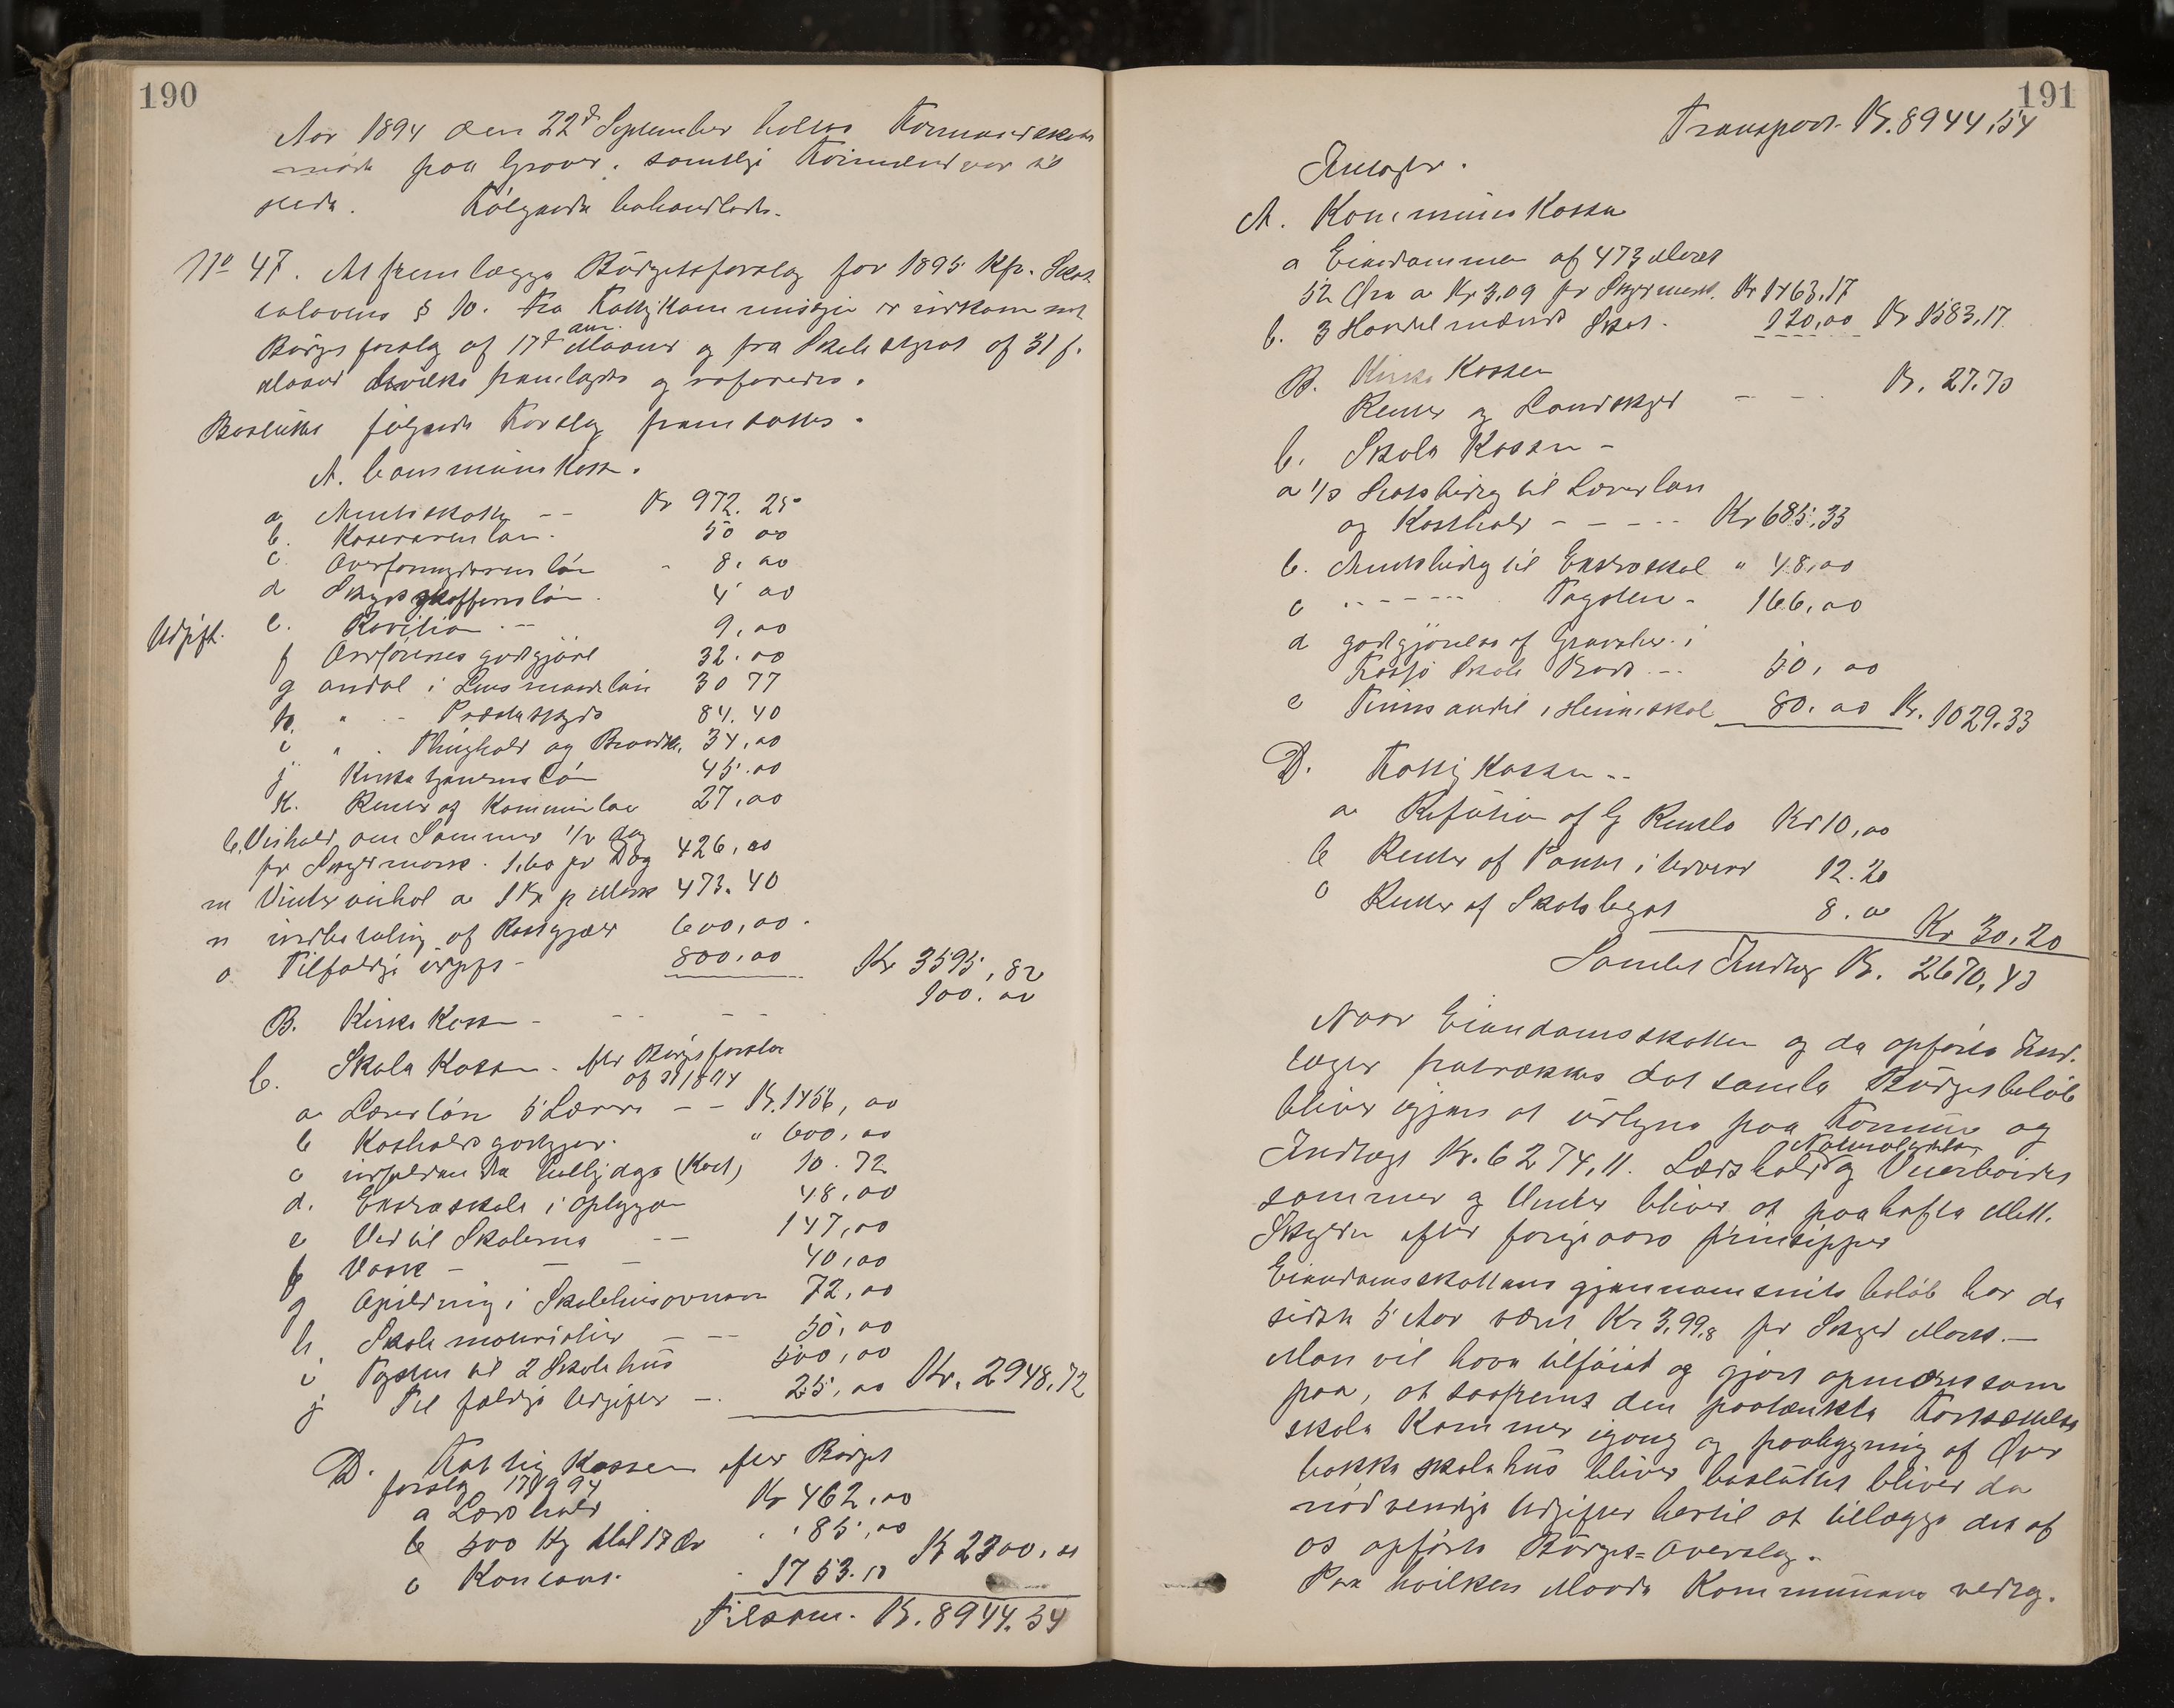 190
Aar 1894 den 22d September holtes Formandskabs
møde paa Grover. samtlige Formænd var til
stede. Følgende behandledes.
No 47. At fremlægge Büdgetsforslag for 1895 Kfr. Skat
telovens § 10. Fra Fattigkommisjon er indkommet
Büdgetforslag af 17d dennes Maaned og fra Skolestyret af 31 f.
Maaned hvilke fremlagdes og refereredes.
Besluttet følgende Forslag fremsættes.
A. Commünekassen.
Udgift.
a Amtsskatten -- Kr 972. 25
b. Kasererens løn. 50 00
c. Overformynderens løn - 8,00
d Skydsskafferens løn. 4 00
e. Revition -- 9,00
f Ordførerens godtgjørel 32.00
g andel i Lensmandsløn 30 77
h. " - Presteskyds 84.40
i " . Thinghold og Brandst. 34,00
j Kirketjenerens løn 45.00
k. Renter af Kommünelaan 27,00
l. Veihold om Sommer 1/2 dag
pr Skyldmark. 1.60 pr Dag 426,00
m Vinterveihol a 1 Kr p Mark 473.40
n indbetaling af Restgjæld 600,00.
o Tilfældige udgifter - 800,00 Kr 3595,82
B. Kirke Kassen - -- -- 100.00
C. Skole Kassen - efter Büdgetforslag
af 31/8 94
a Lærerløn 5 Lærere -- Kr. 1456,00
b Kostholdsgodtgjør. " 600,00
c indfaldende helligdage (Kost) 10.72
d. Ekstraskole i oplyggen 48,00
e Ved til Skolerne -- 147,00
f Vask - - - 40,00
g Opildning i Skolehusovnene 72,00
h Skolemateriel - -- 50,00
i Tapster til 2 Skolehüs 500,00
j Tilfældige Udgifter -. 25,00 Kr. 2948,72
D. Fattig Kassen efter Büdget
forslag 17/9 94
a Lægdshold Kr 462,00
b 500 Kg Mel 17 Ør " " 85,00
c Kontant. - 1753.00 Kr 2300,00
Tilsam. Kr. 8944.54
191
Transport. Kr. 8944,54
Indtægter.
A. Kommüne Kassen
a Eiendommen af 473 Mark
52 Øre a Kr 3,09 pr Skyldmark. Kr 1463,17
b. 3 Handelmænds Skat. 120,00 Kr 1583,17.
B. Kirke Kassen
Renter og Landskyld - - . Kr. 27.73
C. Skole Kassen -
a 1/3 Statsbidrag til Lærerløn
og Kosthold - - - -- Kr 685,33
b. Amtsbidrag til Ekstraskol " 48,00
c " - - - - - Tapster - 166,00
d godtgjørelse af Gravdur i
Fossjø Skole Kreds -- 50,00
e Tinns andel i Heimiskol 80.00 Kr. 1029.33
D. Fattig Kassen --
a Refusion af G Kindls Kr 10,00
b Renter af Panter i Udvend 12.20
c Renter af Skotslegat 8.00
Kr 30,20
Samlet Indtægt Kr. 2670,43
Naar Eiendomsskatten og de opførte Ind-
tæger fratrækkes det samlede Büdgetbeløb
bliver igjen at üdligne paa Formüe og
Indtægt Kr. 6274,11. Lægdshold og Naturalydelser Veiarbeidet
sommer og Vinter bliver at paahefte Matr.
Skylden efter forrige aars prinsipper
Eiendomsskattens gjennomsnits beløb har de
sidste 5 Aar været Kr 3,99,8 pr Skyld Mark. -
Man vil have tilføiet og gjort opmærksom
paa, at saafremt den paatænkte Fortsættelses
skole kommer igang og paabygning af Øver
bakke skolehüs bliver besluttet bliver de
nødvendige Udgifter hertil at tillægge det af
os opførte Büdget=Overslag.
Paa hvilken Maade Kommünens vedtag.